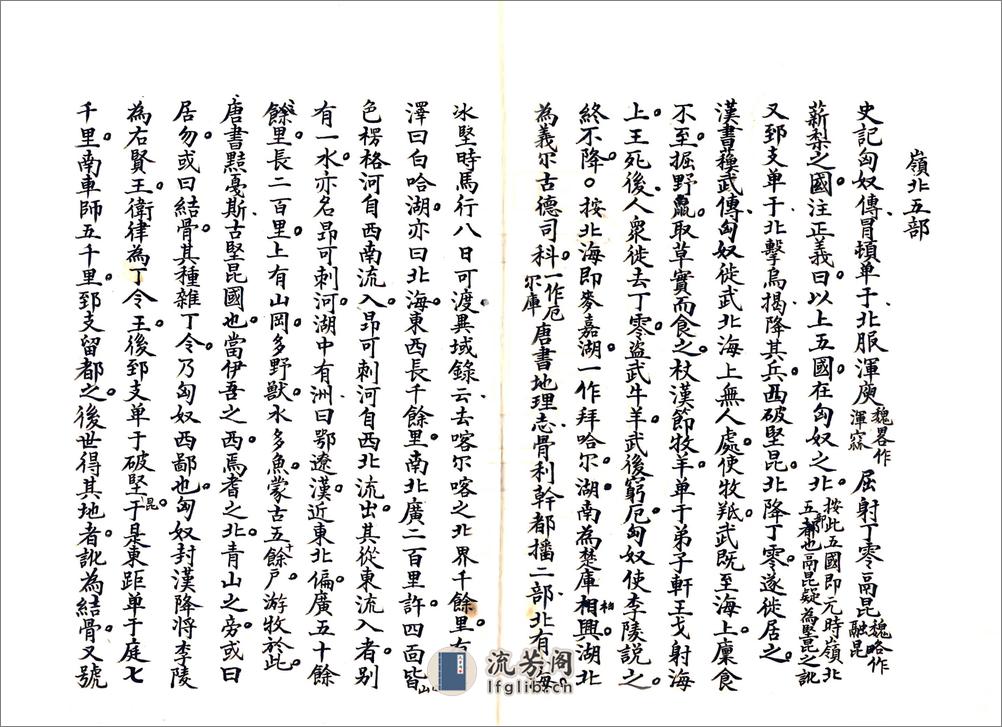 嶺北五部
史記匈奴傳冒頓单于北服渾庾魏畧作渾窳屈射丁零鬲昆魏略作融昆
薪梨之國注正義曰以上五國在匈奴之北按此五國即元時嶺北五都部也鬲昆疑為堅昆之訛
又郅支单于北擊烏揭降其兵西破堅昆北降丁零遂徙居之
漢書蘓武傳匈奴徙武北海上無人處使牧羝武既至海上廩食
不至掘野鼠取草實而食之杖漢節牧羊单于弟子軒王弋射海
上王死後人衆徙去丁零盗武牛羊武後窮厄匈奴使李陵說之
終不降○按北海即麥嘉湖一作拜哈尔湖南為楚庫相柏興湖北
為義尔古德司科一作厄尔庫唐書地理志骨利幹都播二部北有小海
冰堅時馬行八日可渡異域錄云去喀尔喀之北界千餘里有
澤曰白哈湖亦曰北海東西長千餘里南北廣二百里許四面皆山
色楞格河自西南流入昂可刺河自西北流出其從東流入者别
有一水亦名昂可刺河湖中有洲曰鄂遼漢近東北偏廣五十餘
餘里長二百里上有山岡多野獸水多魚蒙古五十餘户游牧於此
唐書黠戛斯古堅昆國也當伊吾之西焉耆之北青山之旁或曰
居勿或曰結骨其種雜丁令乃匈奴西鄙也匈奴封漢降將李陵
為右賢王衛律為丁令王後郅支单于破堅昆于是東距单于庭七
千里南車師五千里郅支留都之後世得其地者訛為結骨又號
流芳阁
lfglib.cn